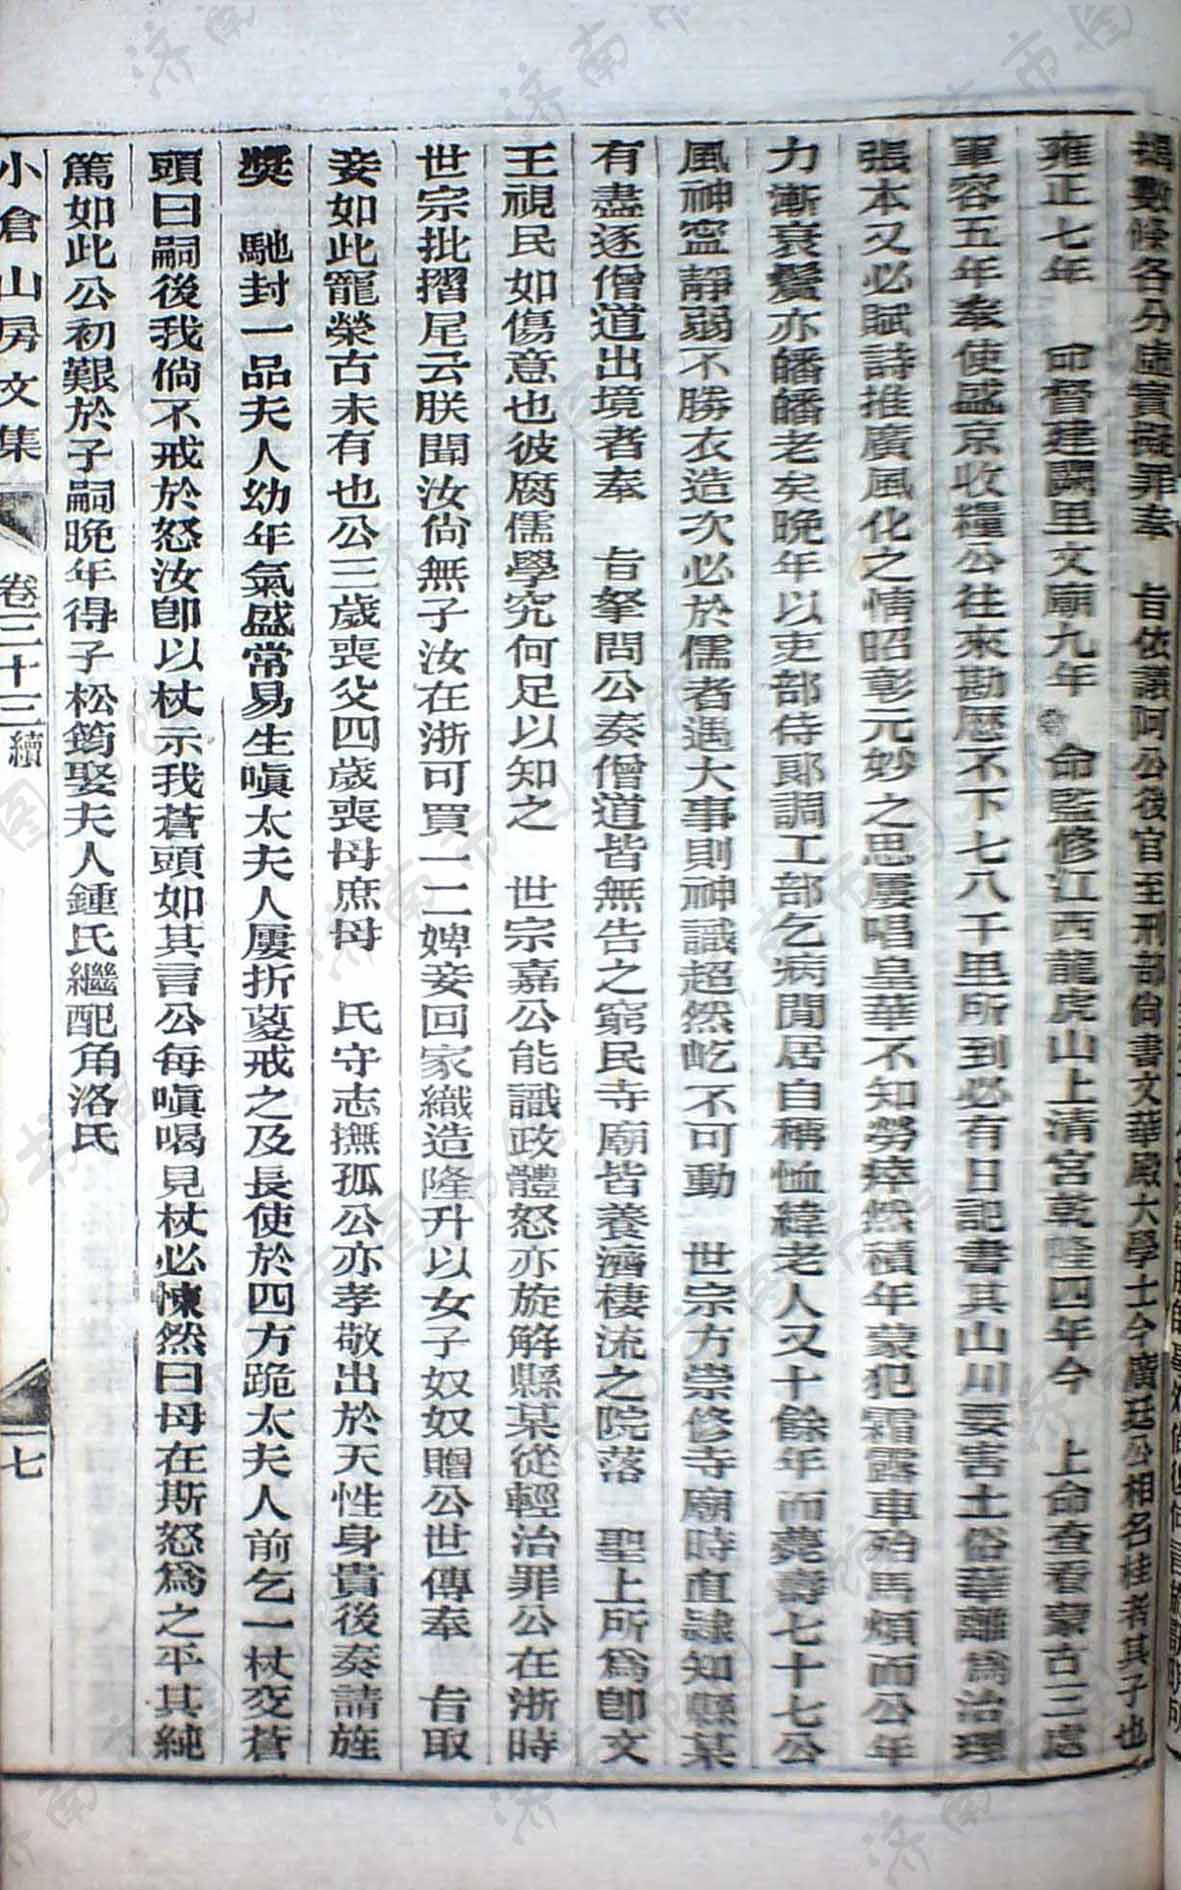 數條各分虛實擬罪奉 旨依議阿公後官至刑部尚書文華殿大學士今廣廷公相名桂者其子也
雍正七年 命督建闕里文廟九年 命監修江西龍虎山上清宮乾隆四年今 上命查看蒙古三處
軍容五年奉使盛京收糧公往來勘歷不下七八千里所到必有日記書其山川要害土俗華離為治理
張本又必賦詩推廣風化之情昭彰元妙之思屢唱皇華不知勞瘁然積年蒙犯霜露車殆馬煩而公年
力漸衰鬢亦皤皤老矣晚年以吏部侍郎調工部乞病閒居自稱恤緯老人又十餘年而薨壽七十七公
風神寍靜弱不勝衣造次必於儒者遇大事則神識超然屹不可動 世宗方崇修寺廟時直隸知縣某
有盡逐僧道出境者奉 旨拏問公奏僧道皆無告之窮民寺廟皆養濟棲流之院落 聖上所為卽文
王視民如傷意也彼腐儒學究何足以知之 世宗嘉公能識政體怒亦旋解縣某從輕治罪公在浙時
世宗批摺尾云朕聞汝尙無子汝在浙可買一二婢妾回家織造隆升以女子奴奴贈公世傳奉 旨取
妾如此寵榮古未有也公三歲喪父四歲喪母庶母 氏守志撫孤公亦孝敬出於天性身貴後奏請旌
獎 馳封一品夫人幼年氣盛常易生嗔太夫人屢折葼戒之及長使於四方跪太夫人前乞一杖交蒼
頭曰嗣後我倘不戒於怒汝卽以杖示我蒼頭如其言公每嗔喝見杖必悚然曰母在斯怒爲之平其純
篤如此公初艱於子嗣晚年得子松筠娶夫人鍾氏繼配角洛氏
小倉山房文集 卷三十三續 七